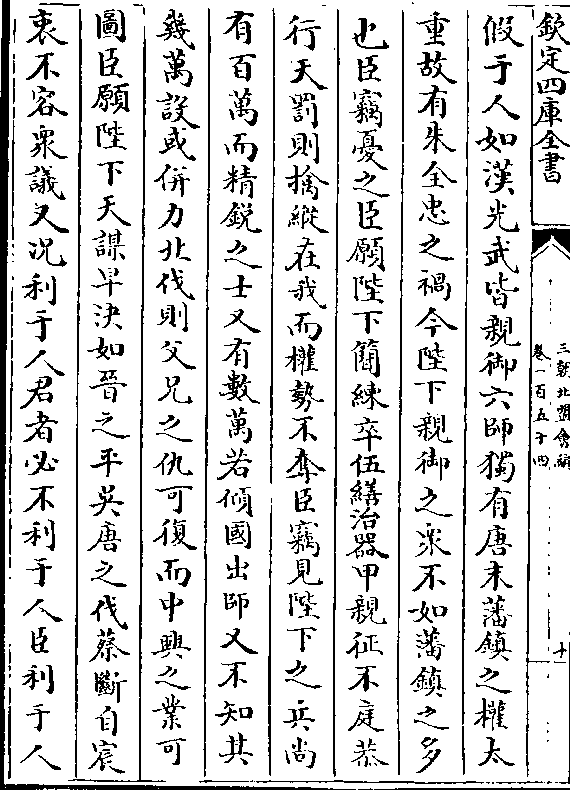 欽定四庫全書
三朝北盟會編
卷一百五十四
十
假于人如漢光武皆親御六師獨有唐末藩鎮之權太
重故有朱全忠之禍今陛下親御之衆不如藩鎮之多
也臣竊憂之臣願陛下簡練卒伍繕治器甲親征不庭恭
行天罰則擒縱在我而權勢不奪臣竊見陛下之兵尚
有百萬而精鋭之士又有數萬若傾國出師又不知其
幾萬設或併力北伐則父兄之仇可復而中興之業可
圖臣願陛下天謀早決如晉之平吳唐之伐蔡斷自宸
衷不容衆議又况利于人君者必不利于人臣利于人